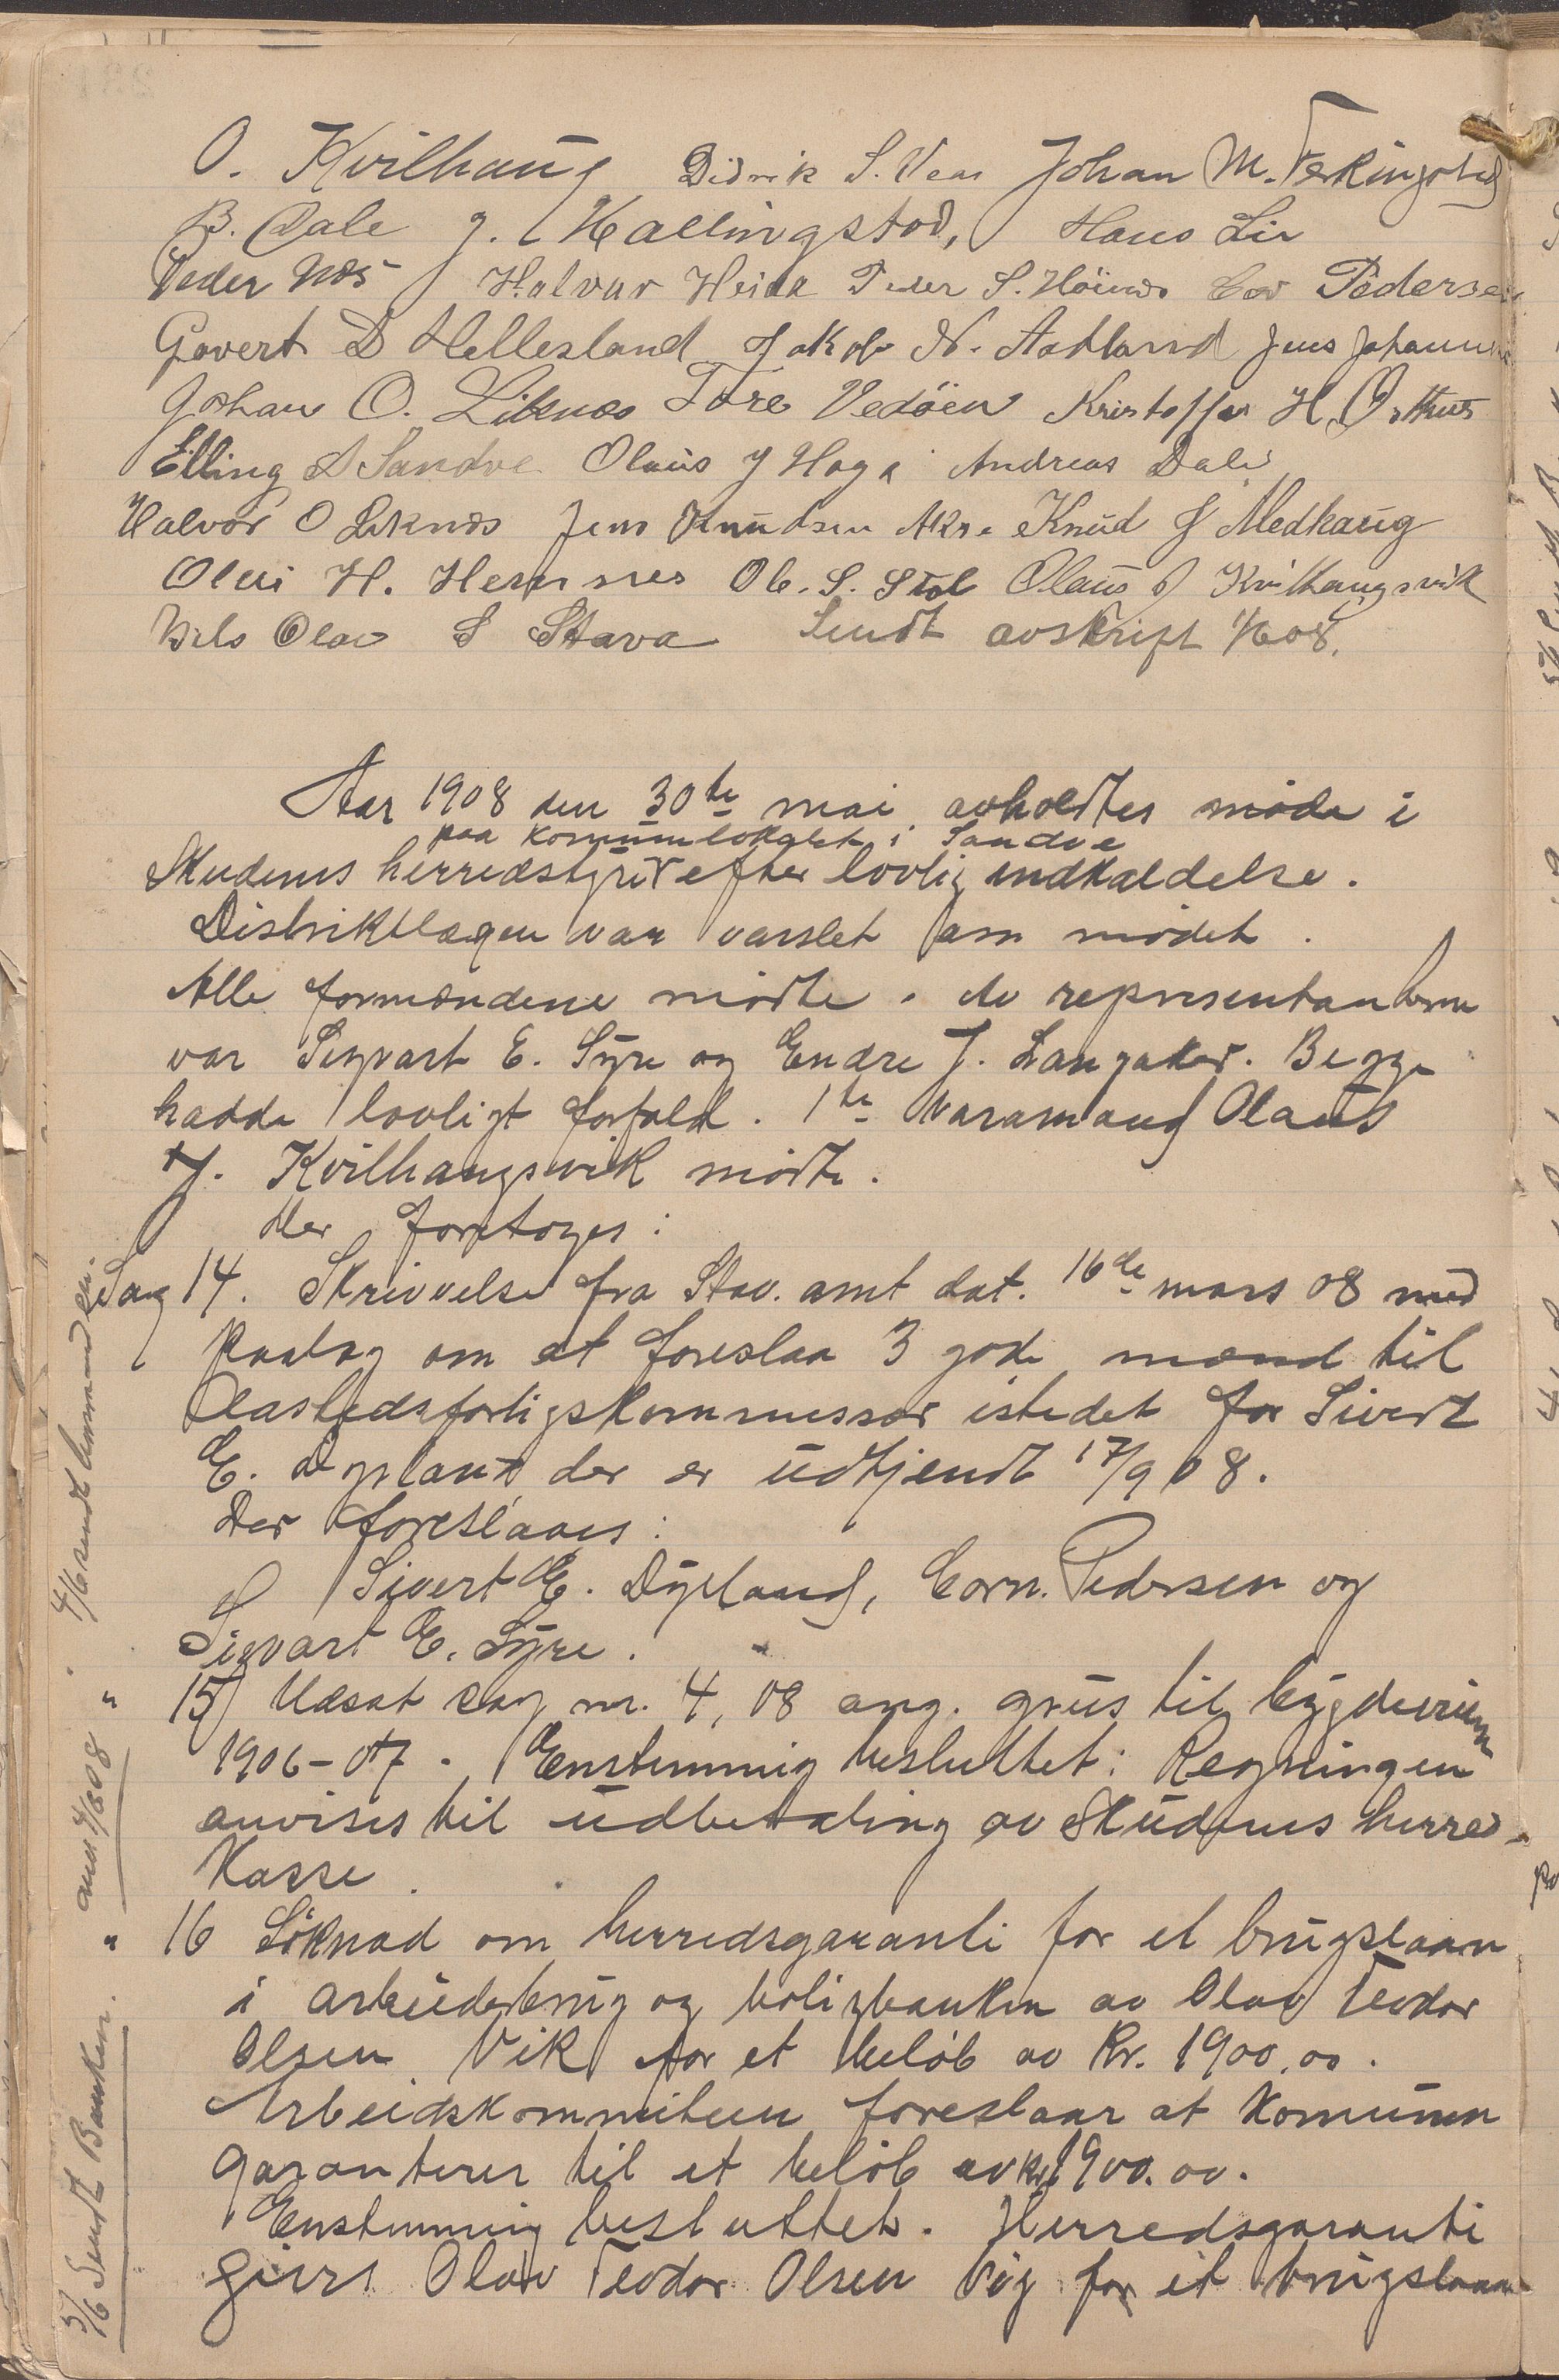 O. Kvilhaug Didrik S. Vea Johan M. Ferkingstad
B. Dale J. Hallingstad, Hans Lie
Peder Næs Halvar Heida Peder S. Höines Cor Pedersen
Govert D Hellesland Jakob N. Aadland Jens Johannes
Johan O. Liknes Tore Vedöen Kristoffer H. Østhus
Elling S Sandve Olaus J Haga Andreas Dale
Halvor O Liknes Jens Knudsen Akre Knud J Medhaug
Olai H. Hemnes Ole. S. Stol Olaus J Kvilhaugsvik
Nils Olav S Stava Sendt avskrift 1/6 08.
Aar 1908 den 30te mai avholdtes møde i
paa komunelokalet i Sandve
Skudenes herredstyre efter lovlig indkaldelse.
Distriktlægen var varslet om mødet.
Alle formændene mødte. Av representanterne
var Sigvart E. Syre og Endre J. Langaker. Begge
hadde lovligt forfald. 1te varamand Olaus
J. Kvilhaugsvik mødte.
Der foretoges:
Sag 14. Skrivelse fra Stav. amt dat. 16de mars 08 med
paalæg om at foreslaa 3 gode mænd til
Aastedsforligskommissær istedet for Sivert
E. Dygland der er udtjendt 17/9 08.
Der foreslaaes:
Sivert E. Dygland, Corn. Pedersen og
Sigvart E. Syre.
15) Udsat sag nr. 4, 08 ang. grus til bygdeveien
1906-07. Enstemmig besluttet: Regningen
anvises til udbetaling av Skudenes herreds
kasse.
16 Söknad om herredsgaranti for et brugslaan
i arbeiderbrug og boligbanken av Olav Teodor
Olsen Vik for et beløb av Kr. 1900,00.
Arbeidskommiteen foreslaar at Komunen
garanterer til et beløb av kr 1900.00.
Enstemmig besluttet. Herredsgaranti
gives Olav Teodor Olsen Vig for et brugslaan
4/6 sendt
" anv 4/6 08 "
5/6 Sendt Banken.